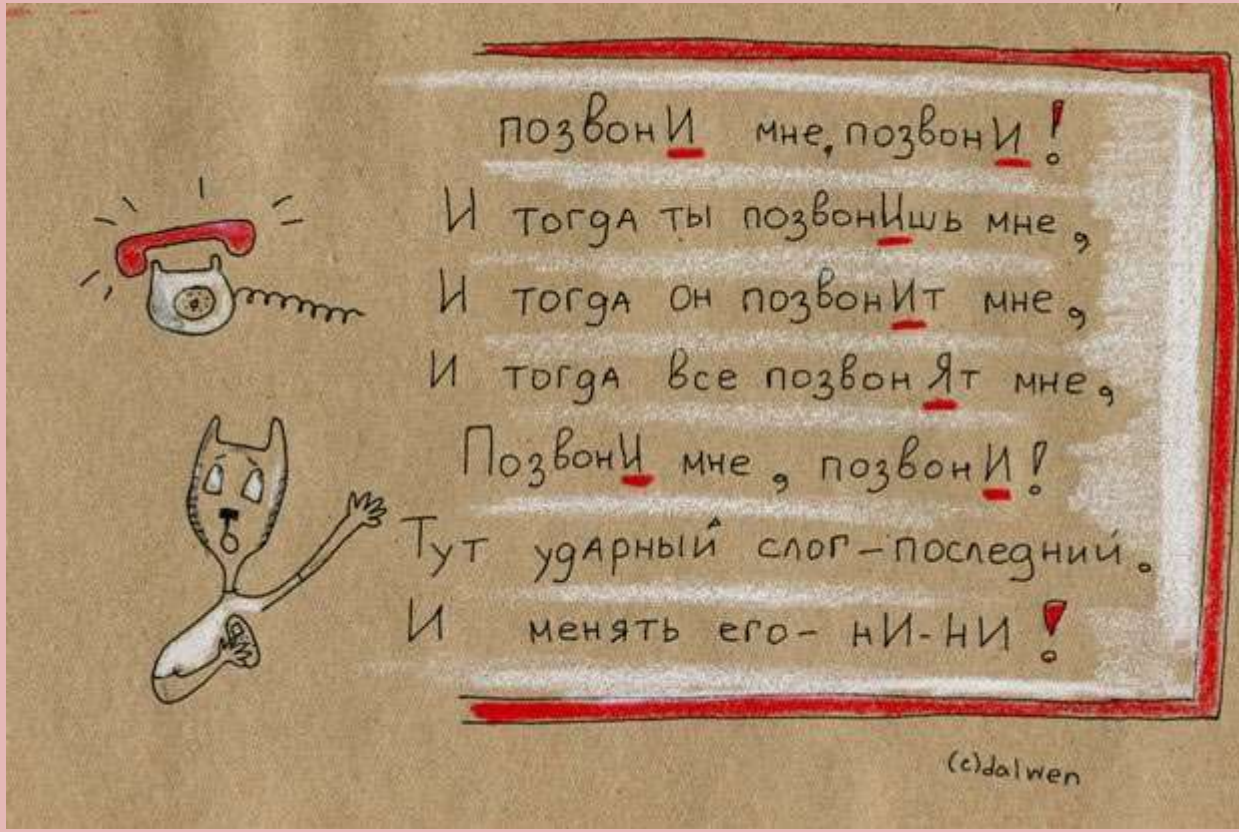 позвонИ мне, позвонИ!
И тогдА ты позвонИшь мне,
И тогдА он позвонИт мне,
И тогдА все позвонЯт мне,
ПозвонИ мне, позвонИ!
Тут удАрный слог - последний.
И менять его - нИ-нИ!
(c)dalwen